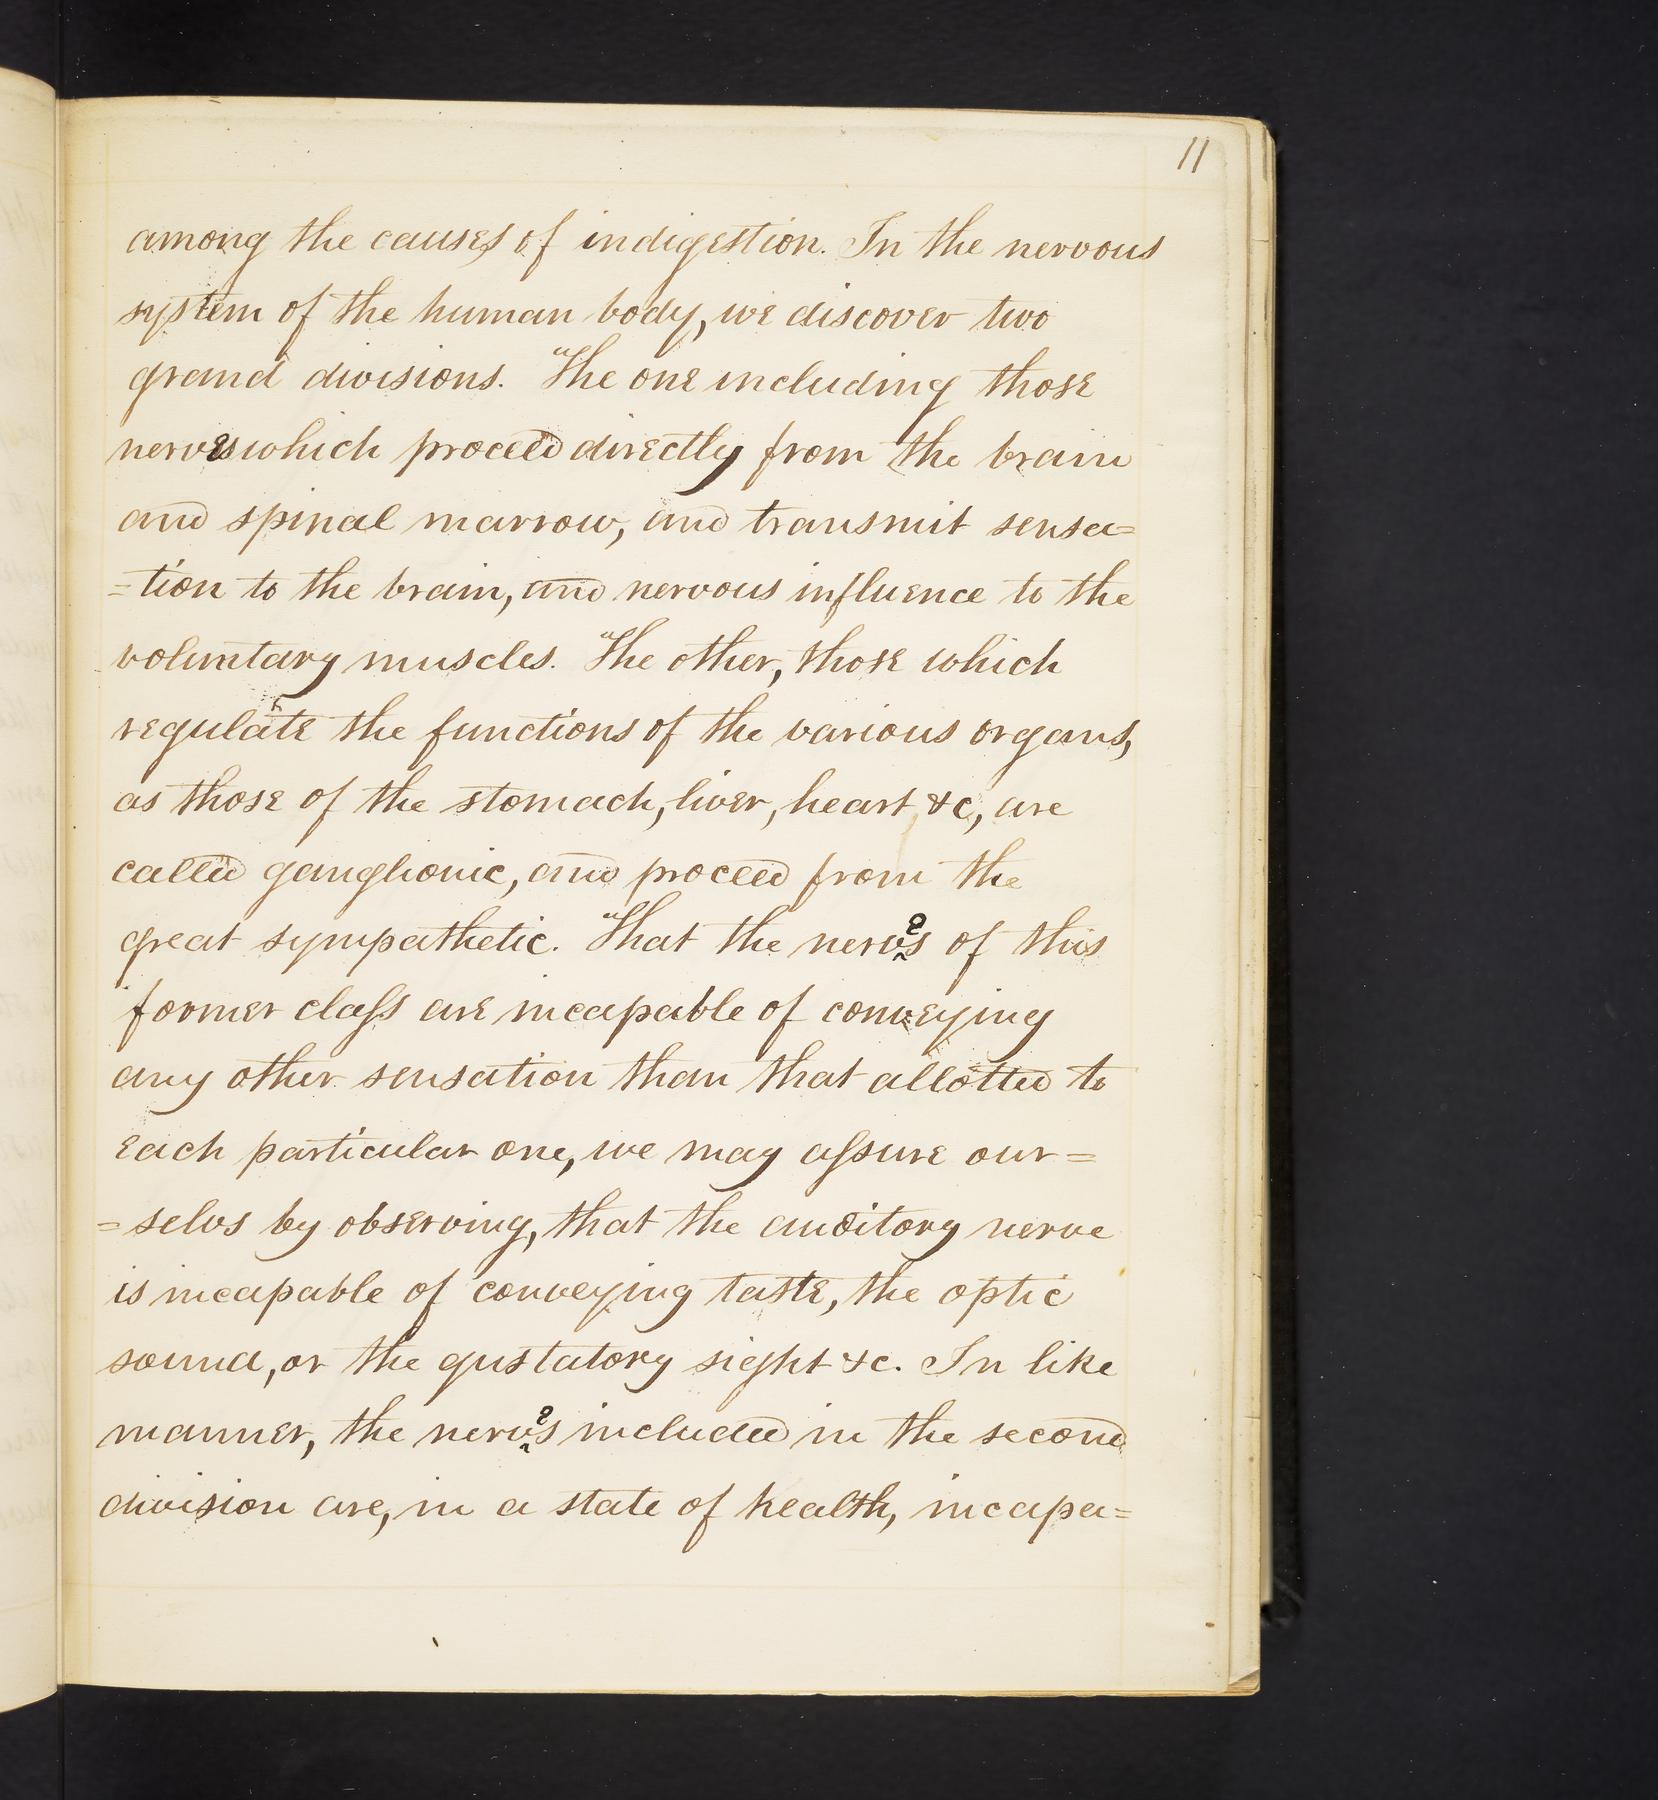 11
among the causes of indigestion. In the nervous
system of the human body, we discover two
grand divisions. The one including those
nerves which proceed directly from the brain
and spinal marrow, and transmit sensa=
=tion to the brain, and nervous influence to the
voluntary muscles. The other, those which
regulate the functions of the various organs,
as those of the stomach, liver, heart, &c, are
called ganglionic, and proceed from the
great sympathetic. That the nerves of this
former claſs are incapable of conveying
any other sensation than that allotted to
each particular one, we may aſsure our=
=selvs by observing, that the auditory nerve
is incapable of conveying taste, the optic
sound, or the gustatory sight &c. In like
manner, the nerves included in the second
division are, in a state of health, incapa=